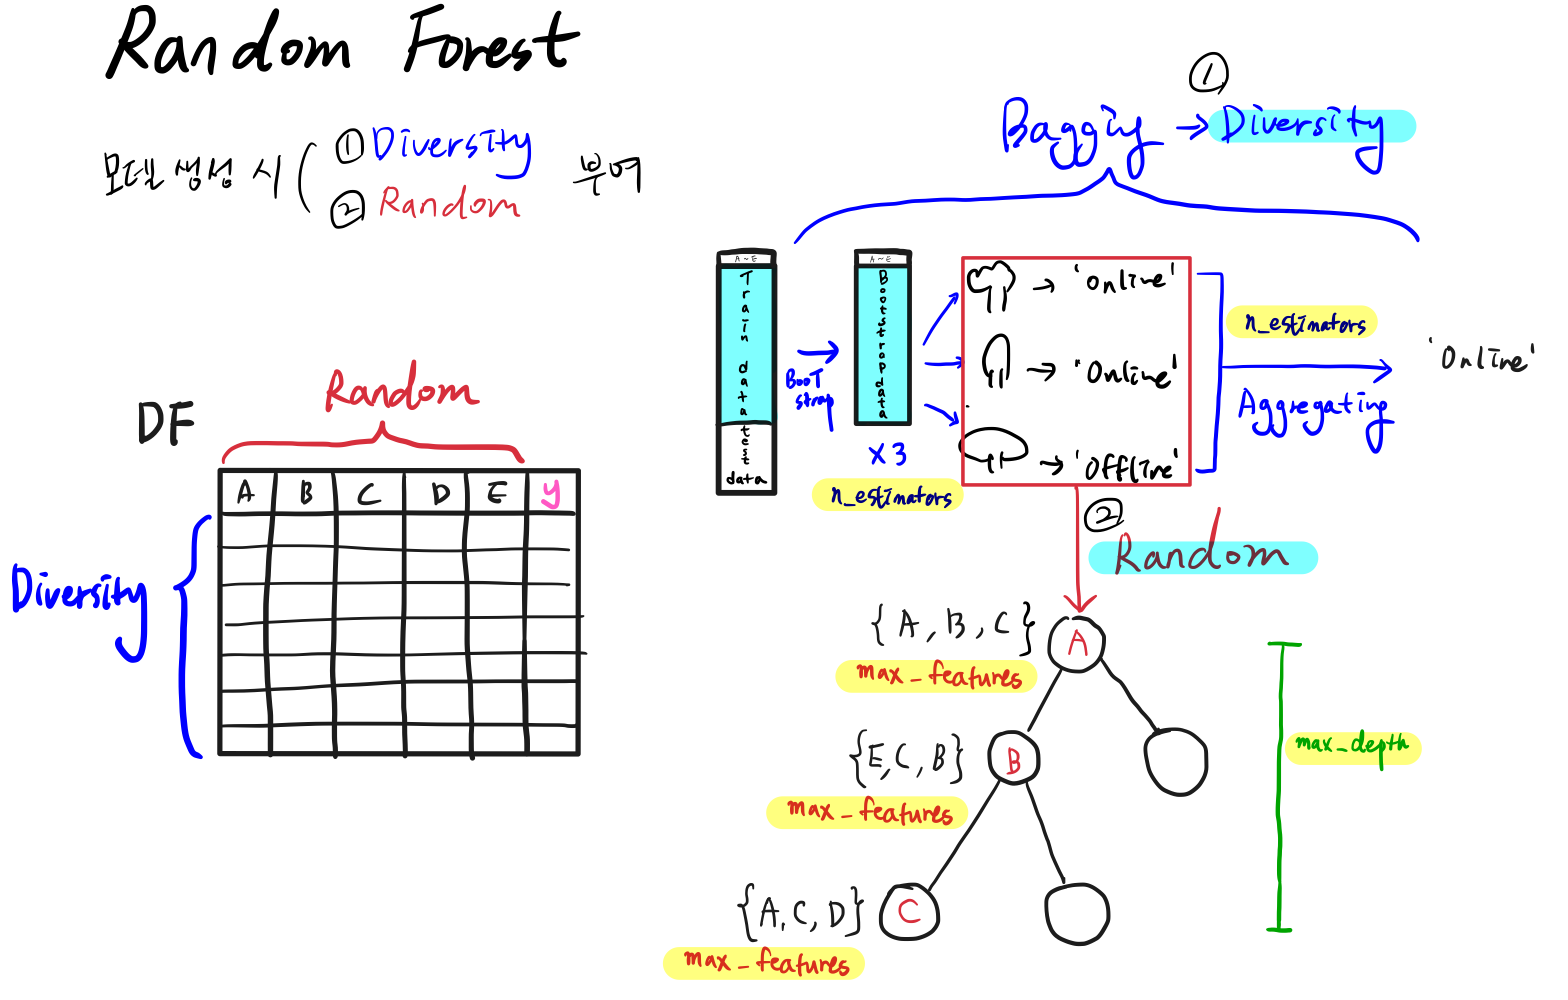 Random Forest
모델 생성 시 ( ① Diversity
② Random 부여
DF
Random
A B C D E y
Diversity
①
Bagging → Diversity
A ~ E
Train data
test data
BooT strap
A ~ E
Bootstrap data
x 3
n_estimators
→ 'Online'
→ 'Online'
→ 'Offline'
n_estimators
Aggregating
'Online'
②
Random
{ A, B, C } A
max_features
{E, C, B} B
max_features
{A, C, D} C
max_features
max_depth